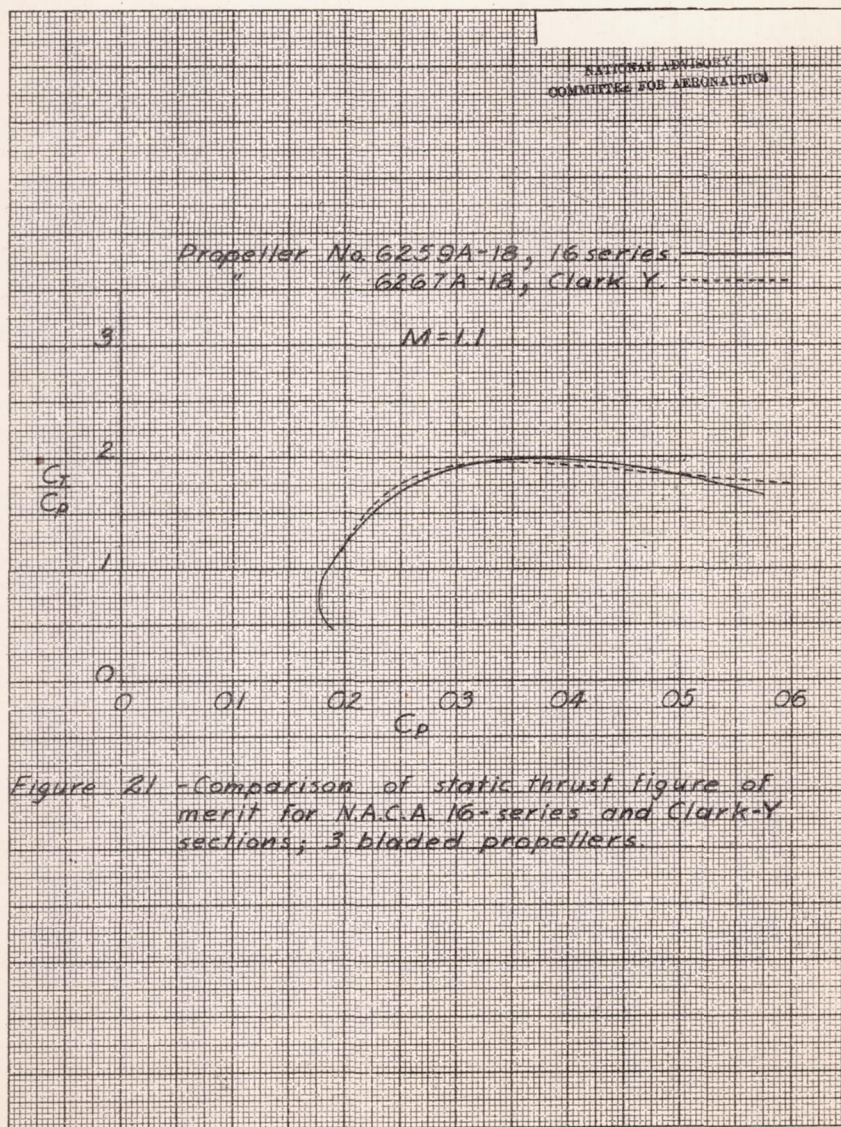 NATIONAL ADVISORY
COMMITTEE FOR AERONAUTICS
Propeller No. 6259A-18, 16 series.
" " 6267A-18, Clark Y.
M=1.1
3
2
C_T
C_P
1
0
0 01 02 03 04 05 06
C_P
Figure 21 - Comparison of static thrust figure of
merit for N.A.C.A. 16-series and Clark-Y
sections; 3 bladed propellers.